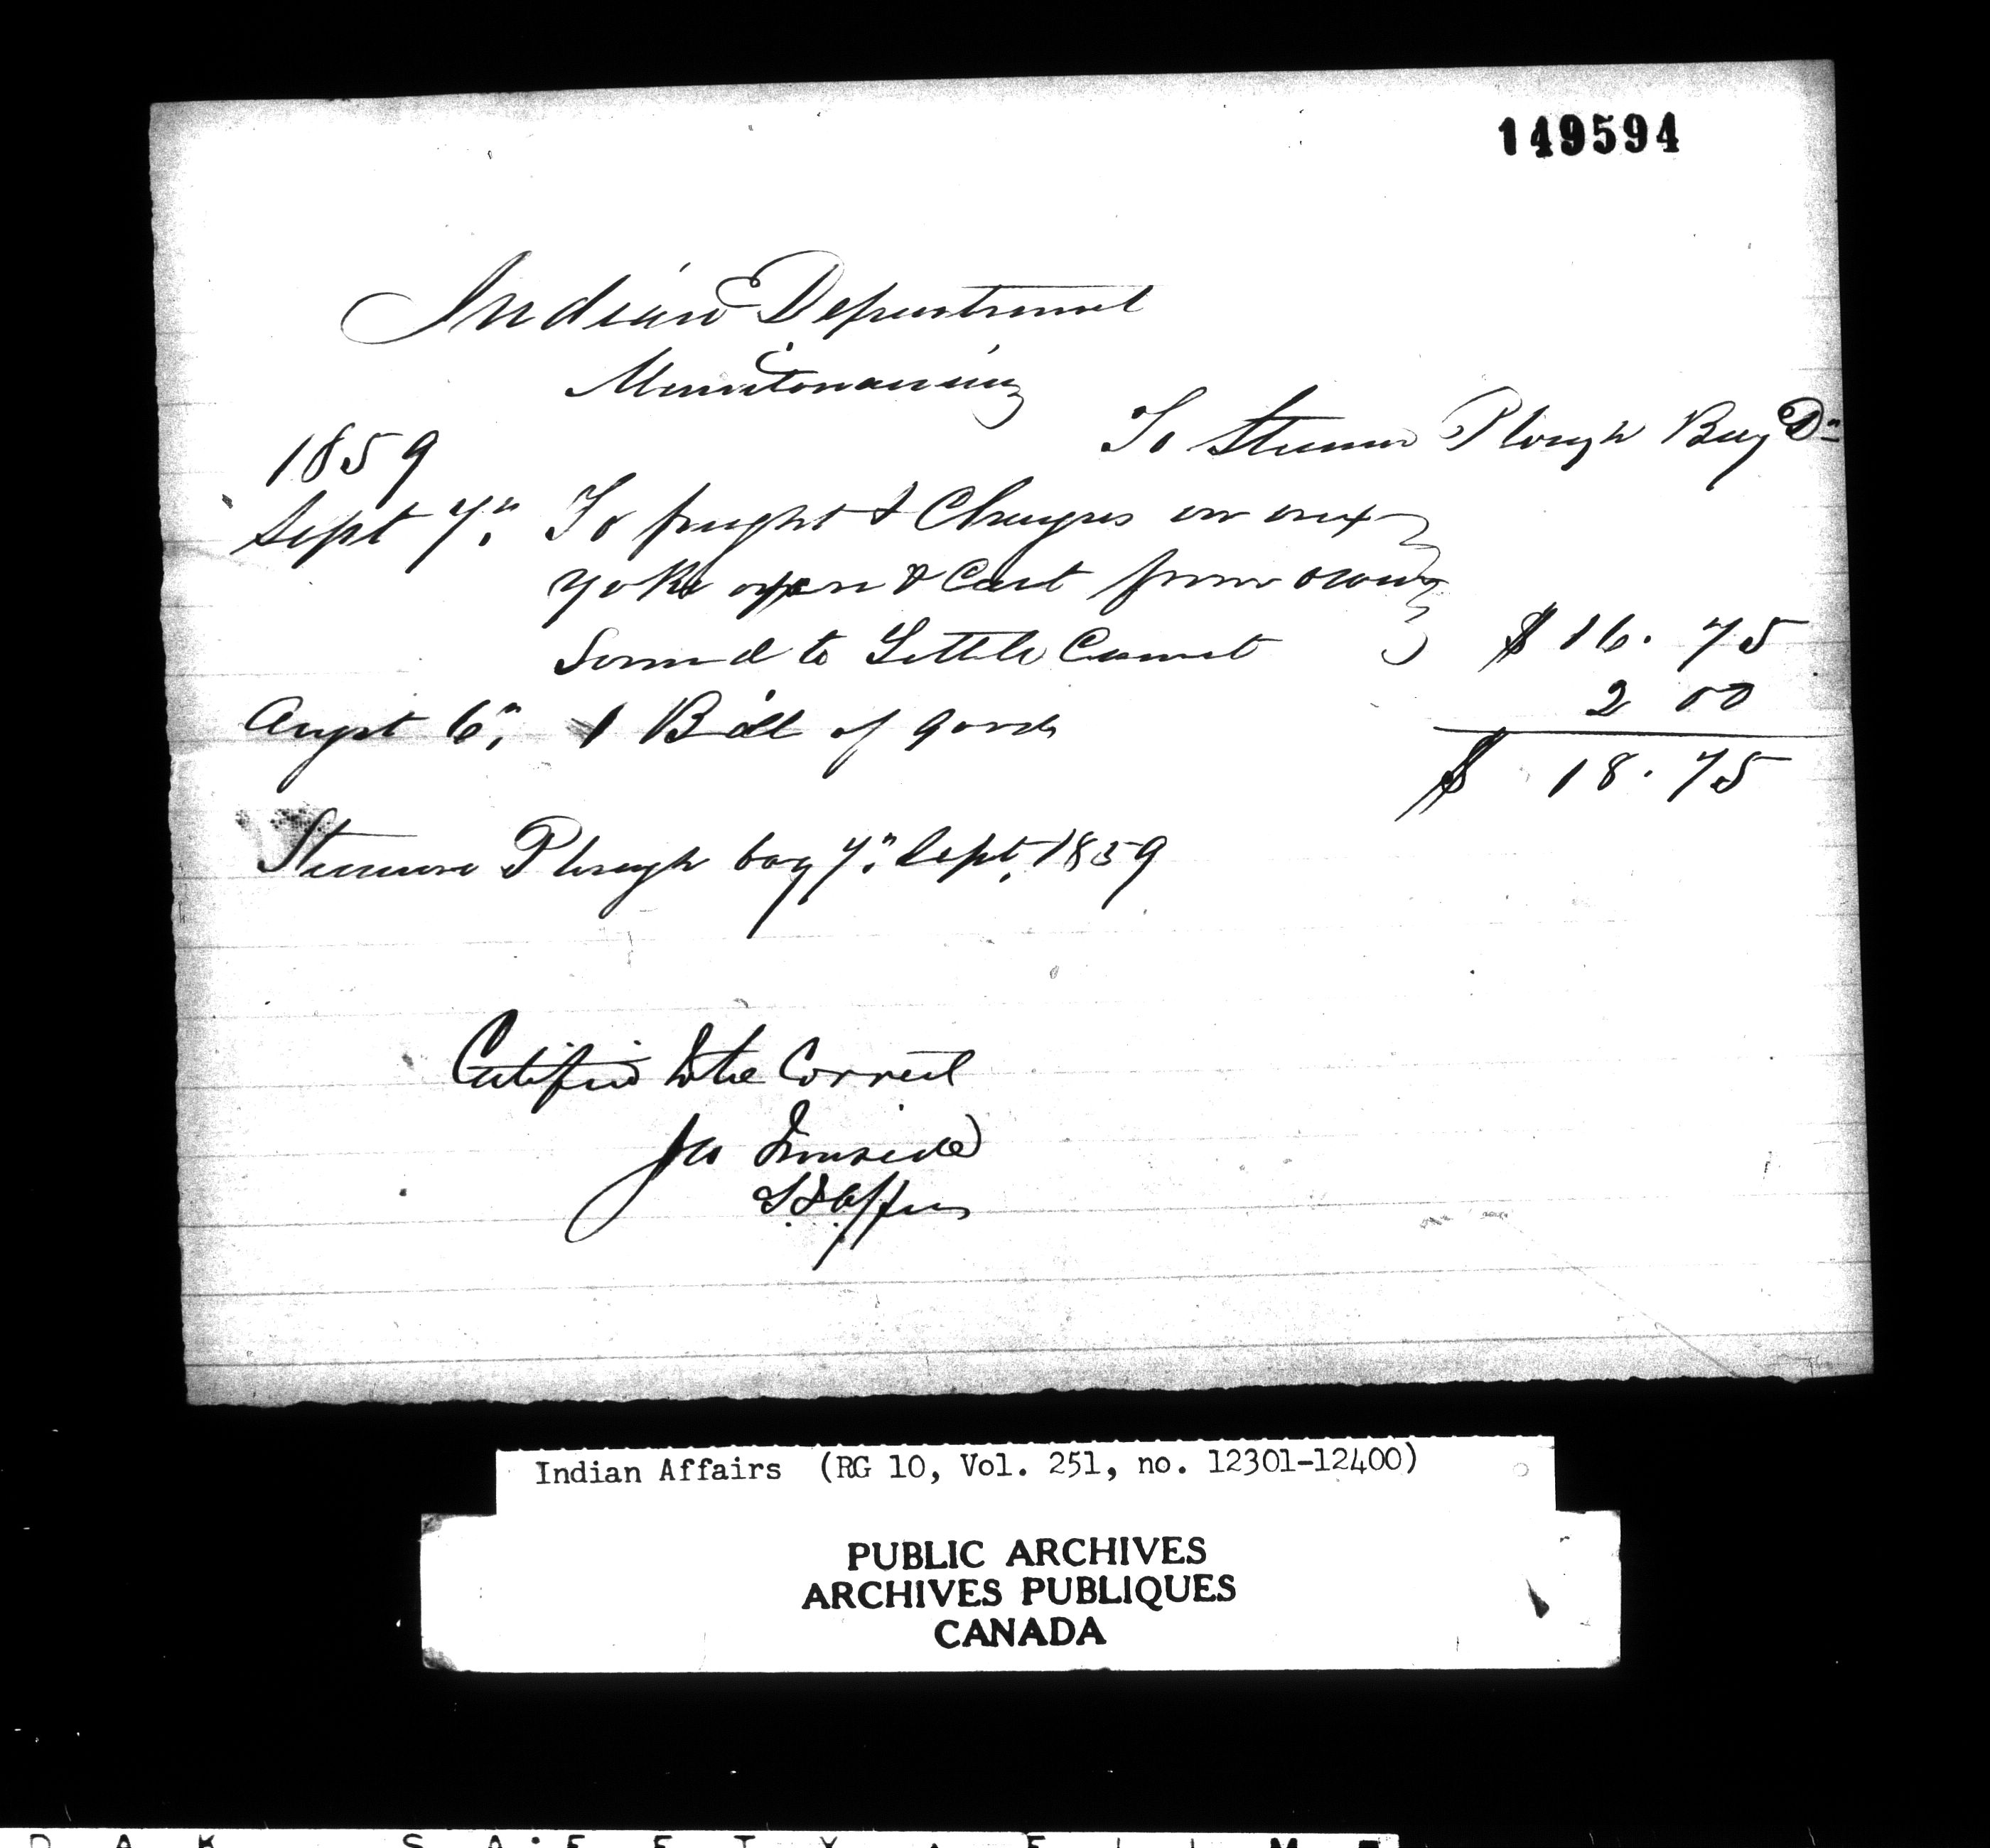 149594
Indian Department
Manitowaning
To Steamer Plough Boy Dr
1859
Sept 7". To freight & Charges on one
yoke oxen & Cart from Owen
Sound to Little Current $ 16. 75
Augst 6". 1 Bdll of goods 2 00
$ 18. 75
Steamer Plough boy 7". Sept. 1859
Certified to be Correct
Ironside
Indian Affairs (RG 10, Vol. 251, no. 12301-12400)
PUBLIC ARCHIVES
ARCHIVES PUBLIQUES
CANADA